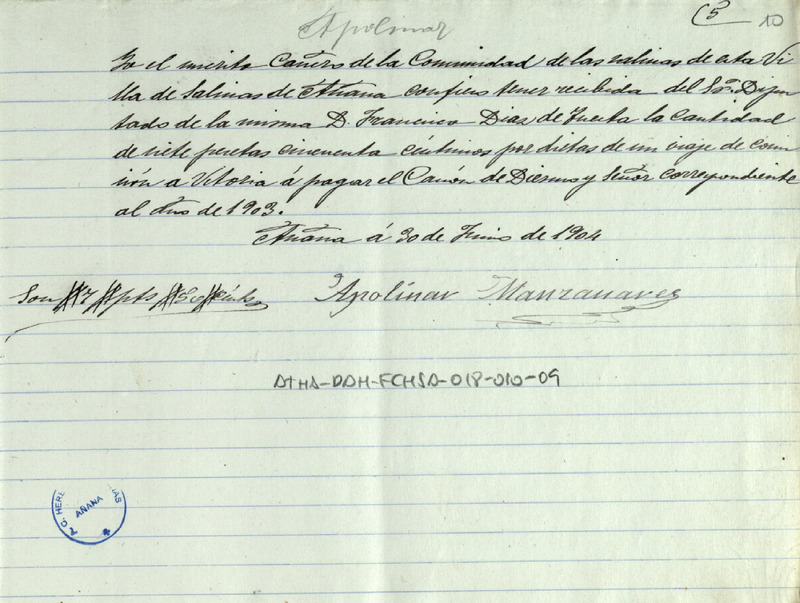 (5 10
Apolinar
Yo el infrito Cañero de la Comunidad de las salinas de esta Vi
lla de Salinas de Añana confieso tener recibida del Sr. Dipu
tado de la misma D. Francisco Diaz de Tuesta la cantidad
de siete pesetas cincuenta céntimos por dietas de un viaje de comi
sión a Vitoria á pagar el Canón de Diezmo y Señor correspondiente
al Año de 1903.
Añana á 30 de Junio de 1904
Son #7 #pts #50 #cénts Apolinar Manzanares
ATHA-DAH-FCHSA-018-010-09
R. C. HERE AS
AÑANA